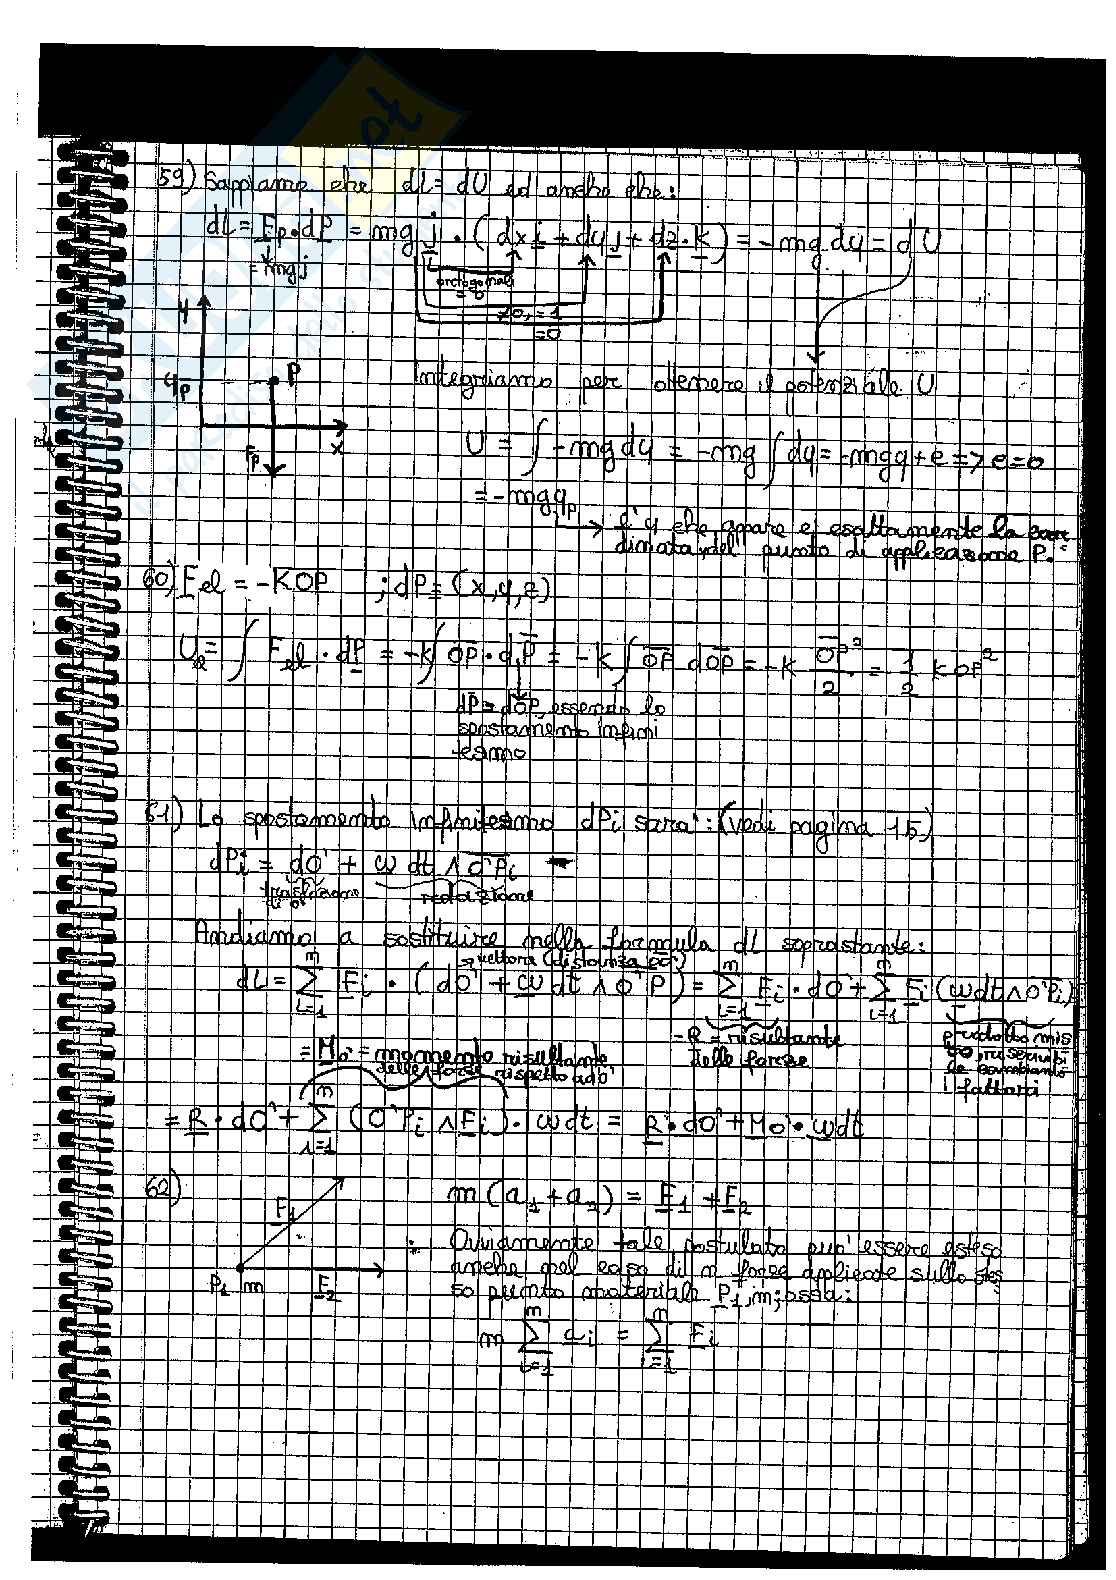 59) Sappiamo che dL = dU ed anche che:
dL = Fp · dP = mg j · (dx i + dy j + dz · k) = -mg dy = dU
= -mgj
ortogonali
= 0
≠0, = 1
=0
y
yp
P
x
Fp
Integriamo per ottenere il potenziale U
U = ∫ -mg dy = -mg ∫ dy = -mgy + c => c = 0
= -mgyp
l'y che appare è esattamente la coor
dinata del punto di applicazione P.
60) Fel = -K OP ; dP = (x, y, z)
Ue = ∫ Fel · dP = -k ∫ OP · dP = -k ∫ OP dOP = -k OP²/2 = 1/2 k OP²
dP = dOP, essendo lo
spostamento infini
tesimo
61) Lo spostamento infinitesimo dPi sarà: (vedi pagina 15)
dPi = dO' + ω dt ∧ O'Pi
traslazione
di O'
rotazione
Andiamo a sostituire nella formula dL soprastante:
vettore (distanza
dL = Σ i=1 n Fi · (dO' + ω dt ∧ O'P) = Σ i=1 n Fi · dO' + Σ i=1 n Fi (ω dt ∧ O'Pi)
R = risultante
delle forze
prodotto mis
to, riscrivi
le cambiando
i fattori
= Mo' = momento risultante
delle forze rispetto ad O'
= R · dO' + Σ i=1 n (O'Pi ∧ Fi) · ω dt = R · dO' + Mo' · ω dt
62)
F1
P1 m
F2
m (a1 + a2) = F1 + F2
Ovviamente tale postulato può essere esteso
anche nel caso di n forze applicate sullo stes
so punto materiale P1, m; ossia:
m Σ i=1 n ai = Σ i=1 n Fi